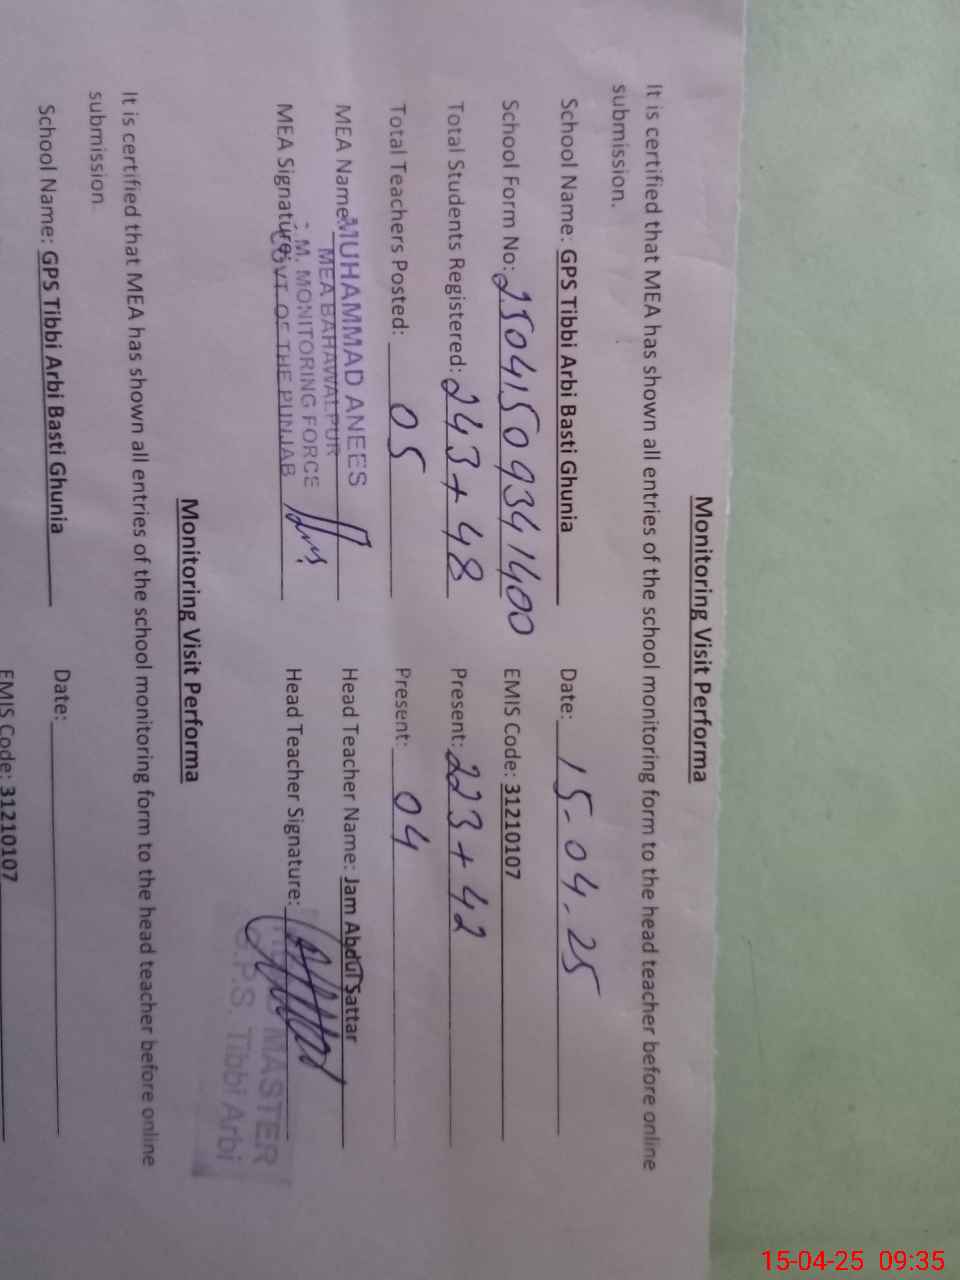 Monitoring Visit Performa
It is certified that MEA has shown all entries of the school monitoring form to the head teacher before online
submission.
School Name: GPS Tibbi Arbi Basti Ghunia Date: 15-04-25
School Form No: 25041509341400 EMIS Code: 31210107
Total Students Registered: 243+48 Present: 223+42
Total Teachers Posted: 05 Present: 04
MEA Name: MUHAMMAD ANEES Head Teacher Name: Jam Abdul Sattar
MEA BAHAWALPUR
M. MONITORING FORCE
MEA Signature: Head Teacher Signature:
GOVT OF THE PUNJAB
MASTER
G.P.S. Tibbi Arbi
Monitoring Visit Performa
It is certified that MEA has shown all entries of the school monitoring form to the head teacher before online
submission.
School Name: GPS Tibbi Arbi Basti Ghunia Date:
EMIS Code: 31210107
15-04-25 09:35